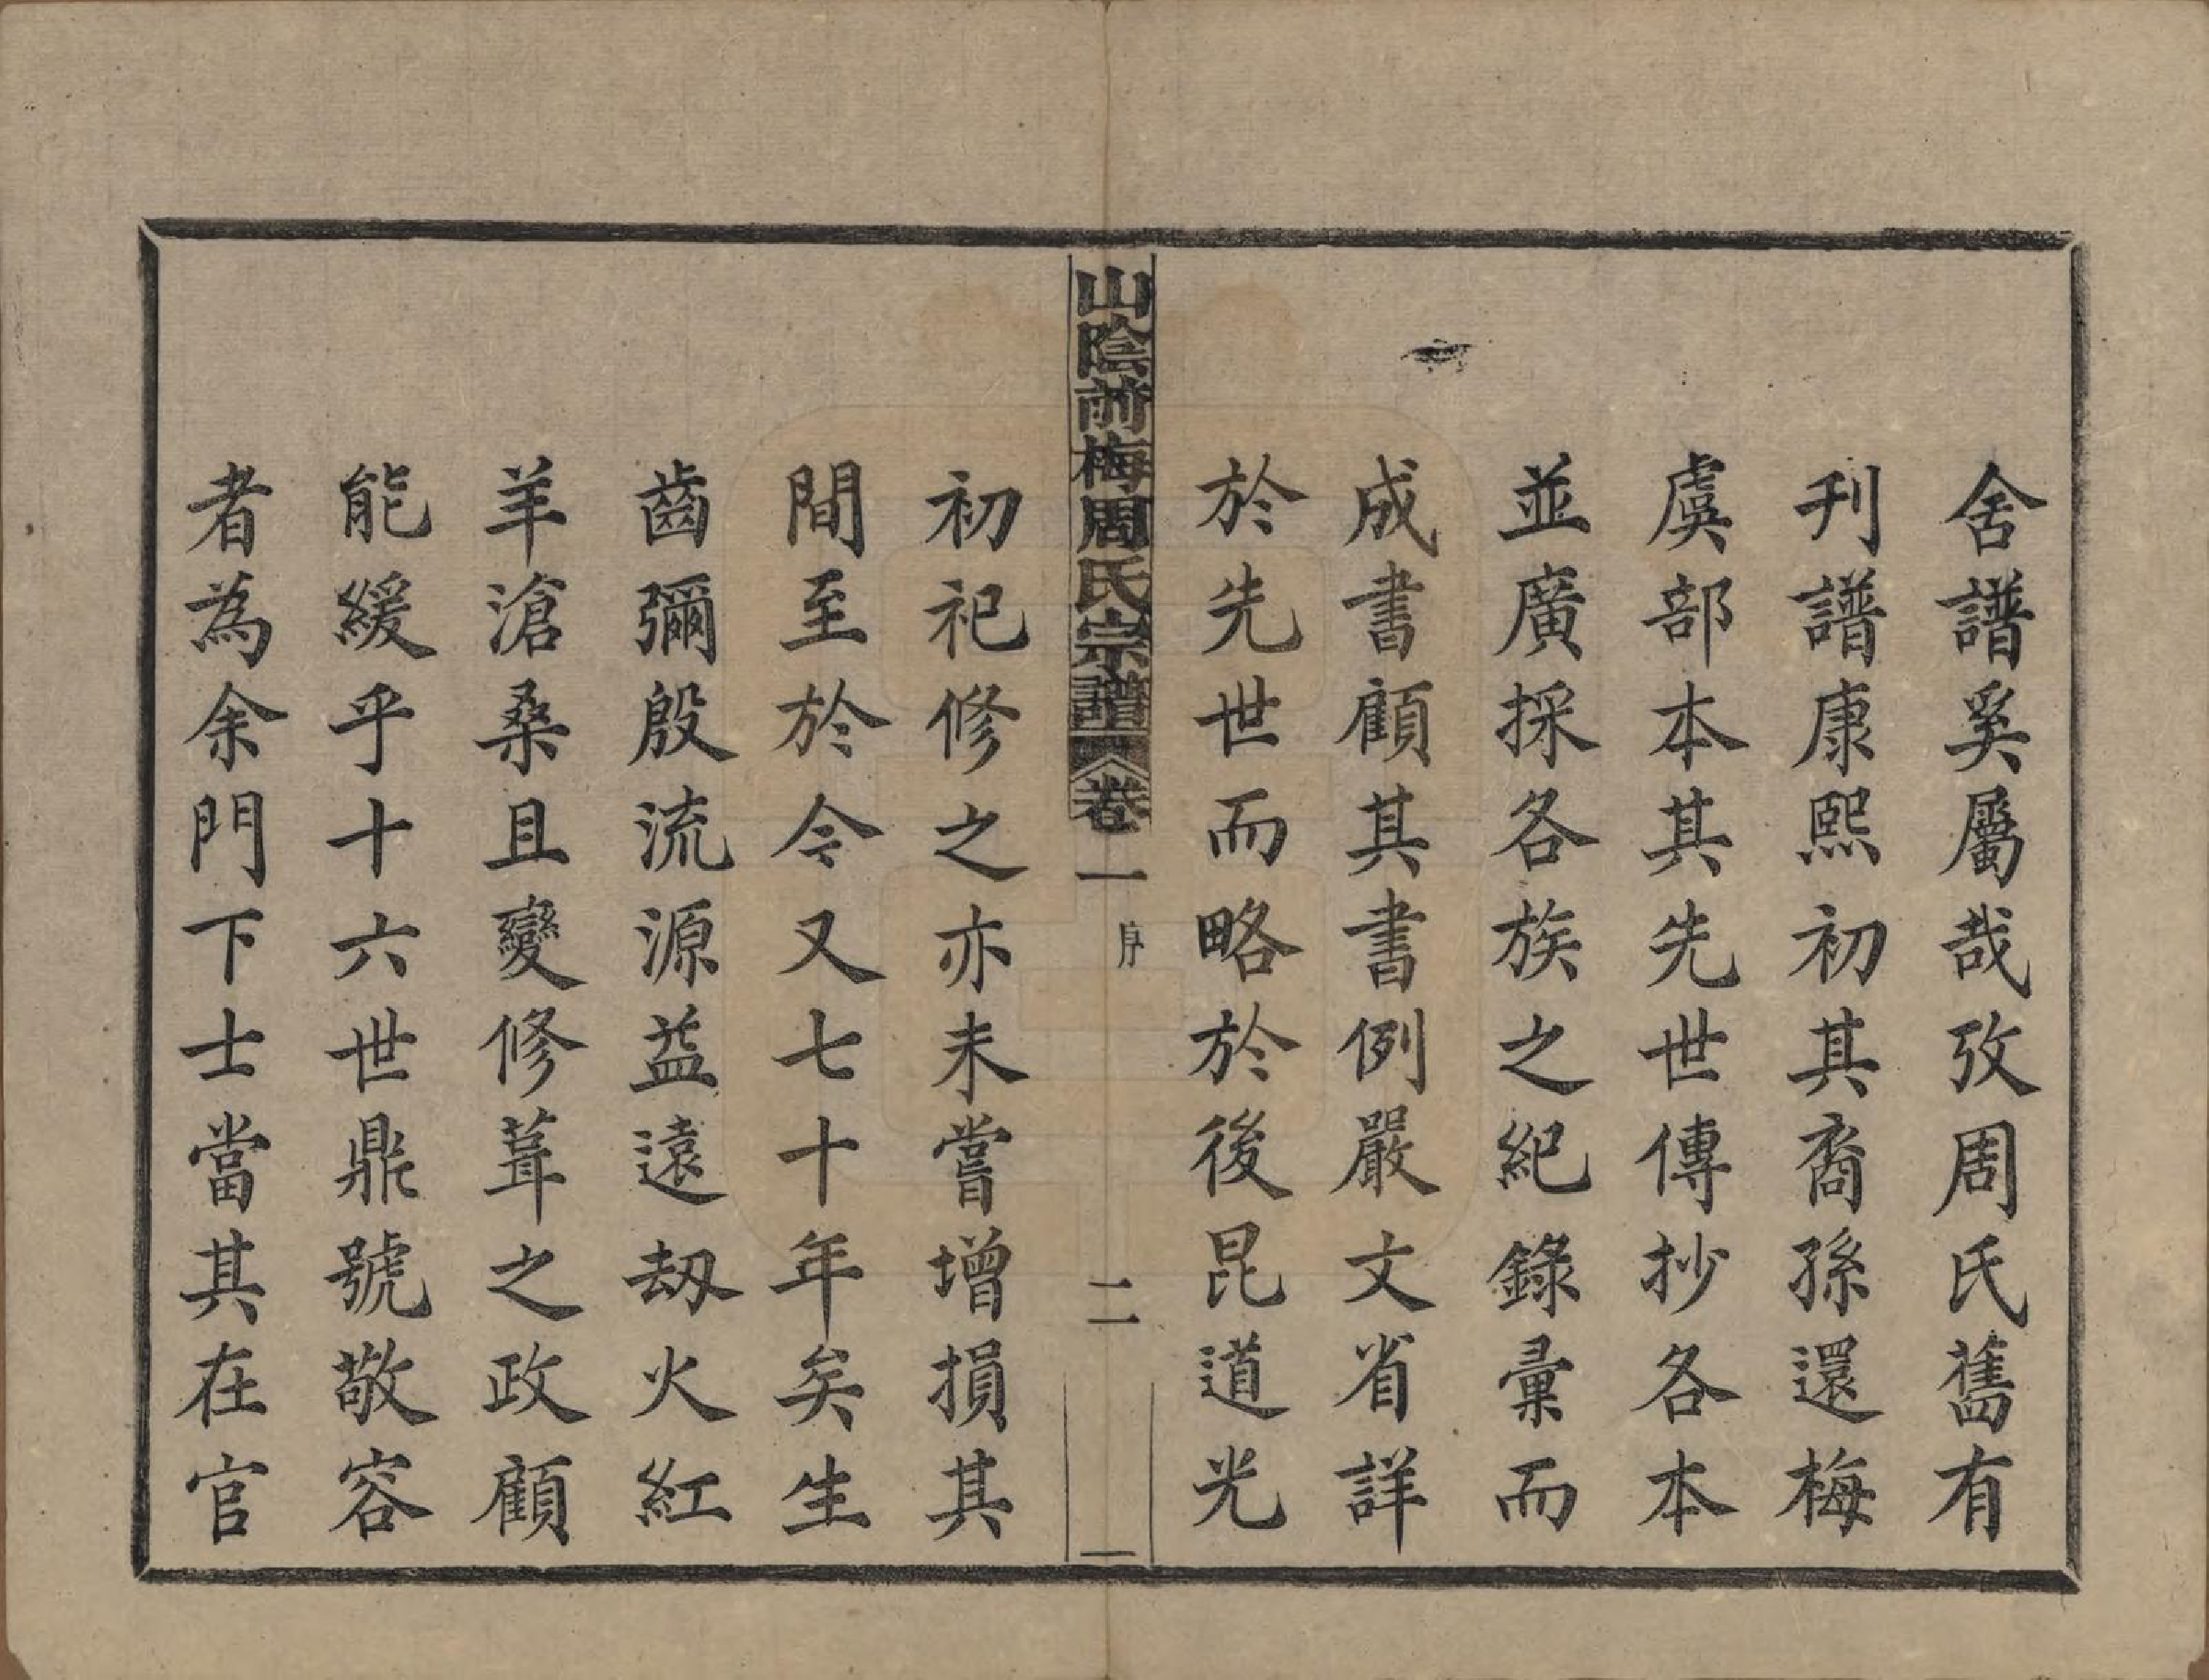 舍譜奚屬哉攷周氏舊有
刋譜康熙初其裔孫還梅
虞部本其先世傳抄各本
並廣採各族之紀錄彙而
成書顧其書例嚴文省詳
於先世而略於後昆道光
山陰前梅周氏宗譜 卷一 序 二
初祀修之亦未嘗增損其
間至於今又七十年矣生
齒彌殷流源益遠刼火紅
羊滄桑且變修葺之政顧
能緩乎十六世鼎號敬容
者為余門下士當其在官